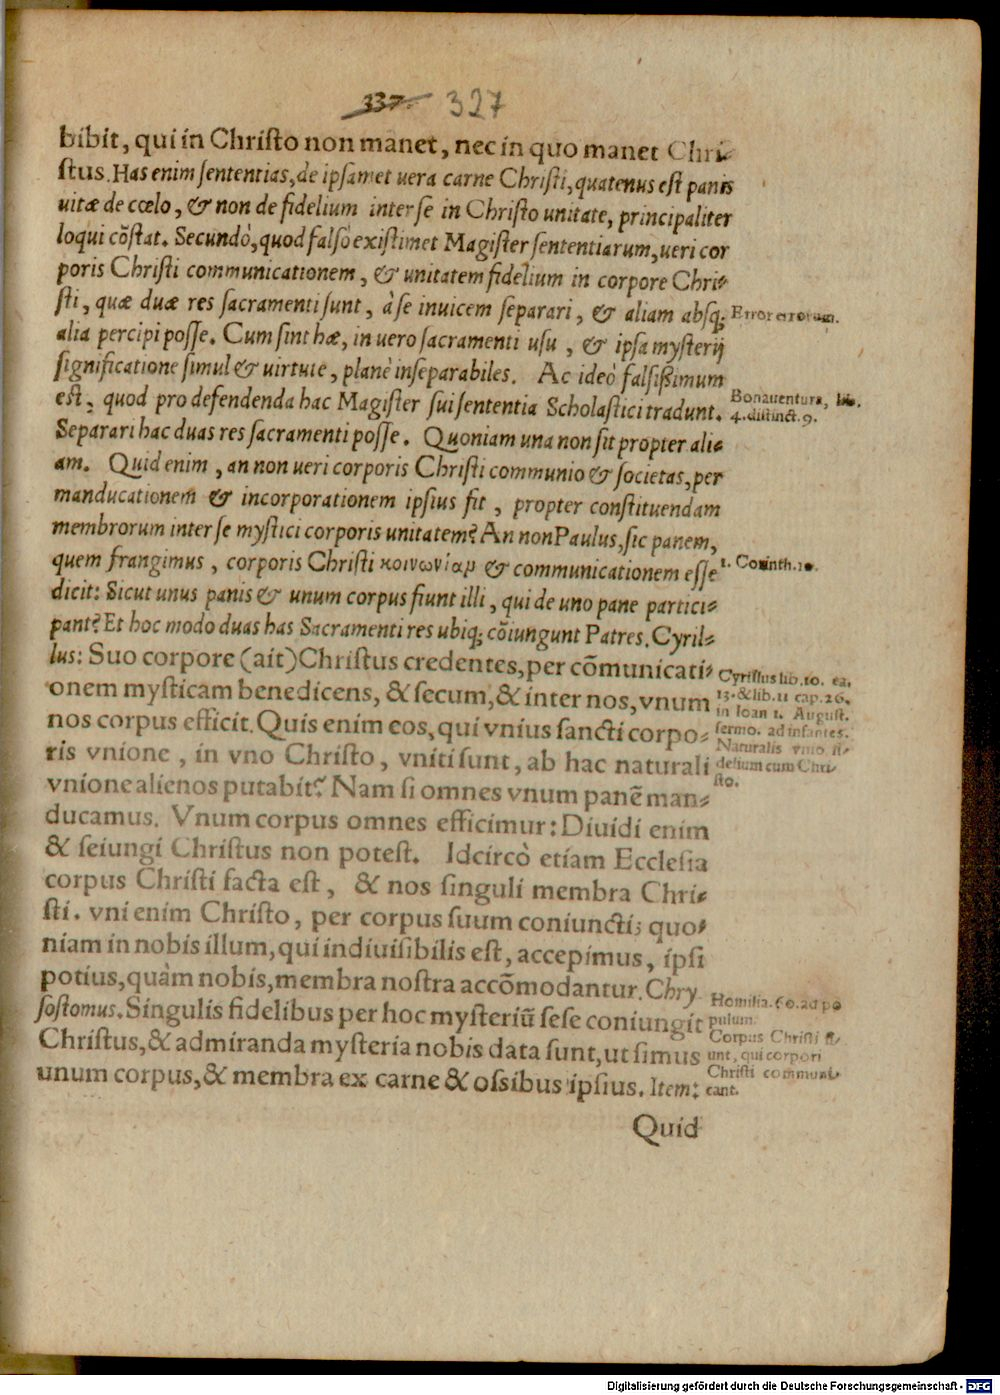 337. 327
bibit, qui in Christo non manet, nec in quo manet Chri-
stus. Has enim sententias, de ipsamet uera carne Christi, quatenus est panis
uitæ de cœlo, & non de fidelium inter se in Christo unitate, principaliter
loqui cõstat. Secundò, quod falsò existimet Magister sententiarum, ueri cor
poris Christi communicationem, & unitatem fidelium in corpore Chri-
sti, quæ duæ res sacramenti sunt, à se inuicem separari, & aliam absq;
Error errorum.
alia percipi posse. Cum sint hæ, in uero sacramenti usu, & ipsa mysterij
significatione simul & uirtute, planè inseparabiles. Ac ideò falsißimum
est, quod pro defendenda hac Magister sui sententia Scholastici tradunt.
Bonauentura, lib.
4. distinct. 9.
Separari hac duas res sacramenti posse. Quoniam una non sit propter ali-
am. Quid enim, an non ueri corporis Christi communio & societas, per
manducationem & incorporationem ipsius fit, propter constituendam
membrorum inter se mystici corporis unitatem? An non Paulus, sic panem,
quem frangimus, corporis Christi κοινωνίαμ & communicationem esse
1. Corinth. 10.
dicit: Sicut unus panis & unum corpus fiunt illi, qui de uno pane partici-
pant? Et hoc modo duas has Sacramenti res ubiq; cõiungunt Patres. Cyril-
lus: Suo corpore (ait) Christus credentes, per cõmunicati-
onem mysticam benedicens, & secum, & inter nos, vnum
nos corpus efficit. Quis enim eos, qui vnius sancti corpo-
ris vnione, in vno Christo, vniti sunt, ab hac naturali
vnione alienos putabit? Nam si omnes vnum panẽ man-
Cyrillus lib. 10. ca.
13. & lib. 11 cap. 26.
in Ioan 1. August.
sermo. ad infantes.
Naturalis vnio fi-
delium cum Chri-
sto.
ducamus. Vnum corpus omnes efficimur: Diuidi enim
& seiungi Christus non potest. Idcircò etiam Ecclesia
corpus Christi facta est, & nos singuli membra Chri-
sti. vni enim Christo, per corpus suum coniuncti; quo-
niam in nobis illum, qui indiuisibilis est, accepimus, ipsi
potius, quàm nobis, membra nostra accõmodantur. Chry
sostomus. Singulis fidelibus per hoc mysteriũ sese coniungit
Christus, & admiranda mysteria nobis data sunt, ut simus
unum corpus, & membra ex carne & ossibus ipsius. Item:
Homilia. 60. ad po
pulum.
Corpus Christi fi-
unt, qui corpori
Christi communi-
cant.
Quid
Digitalisierung gefördert durch die Deutsche Forschungsgemeinschaft - DFG